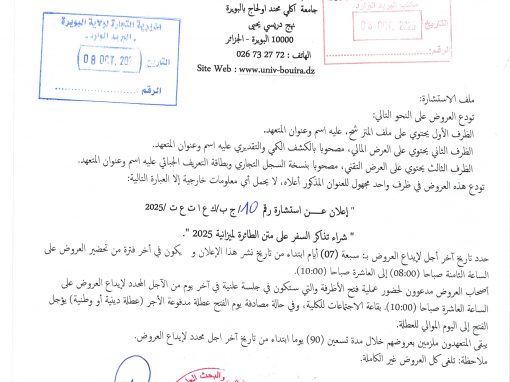 جامعة آكلي محند اولحاج بالبويرة
نهج دريسي يحيى
10000 البويرة - الجزائر
الهاتف : 72 27 73 026
Site Web : www.univ-bouira.dz
مديرية التجارة لولاية البويرة
البريد الوارد
التاريخ 08 OCT. 2025
الرقم:
مكتب البريد الوارد
التاريخ
الرقم
ملف الاستشارة:
تودع العروض على النحو التالي:
الظرف الأول يحتوي على ملف الترشح، عليه اسم وعنوان المتعهد.
الظرف الثاني يحتوي على العرض المالي، مصحوبا بالكشف الكمي والتقديري عليه اسم وعنوان المتعهد.
الظرف الثالث يحتوي على العرض التقني، مصحوبا بنسخة السجل التجاري وبطاقة التعريف الجبائي عليه اسم وعنوان المتعهد.
تودع هذه العروض في ظرف واحد مجهول للعنوان المذكور أعلاه، لا يحمل أي معلومات خارجية إلا العبارة التالية:
" إعلان عـــن استشارة رقم 10/ج ب/ك ع ا ت ع ت /2025
" شراء تذاكر السفر على متن الطائرة لميزانية 2025 "
حدد تاريخ آخر أجل لإيداع العروض بـ: سبعة (07) أيام ابتداء من تاريخ نشر هذا الإعلان و يكون في آخر فترة من تحضير العروض على
الساعة الثامنة صباحا (08:00) إلى العاشرة صباحا (10:00).
أصحاب العروض مدعوون لحضور عملية فتح الأظرفة والتي ستكون في جلسة علنية في آخر يوم من الآجل المحدد لإيداع العروض على
الساعة العاشرة صباحا (10:00). بقاعة الاجتماعات للكلية، وفي حالة مصادفة يوم الفتح عطلة مدفوعة الأجر (عطلة دينية أو وطنية) يؤجل
الفتح إلى اليوم الموالي للعطلة.
يبقى المتعهدون ملزمين بعروضهم خلال مدة تسعين (90) يوما ابتداء من تاريخ آخر اجل محدد لإيداع العروض.
ملاحظة: تلغى كل العروض غير الكاملة.